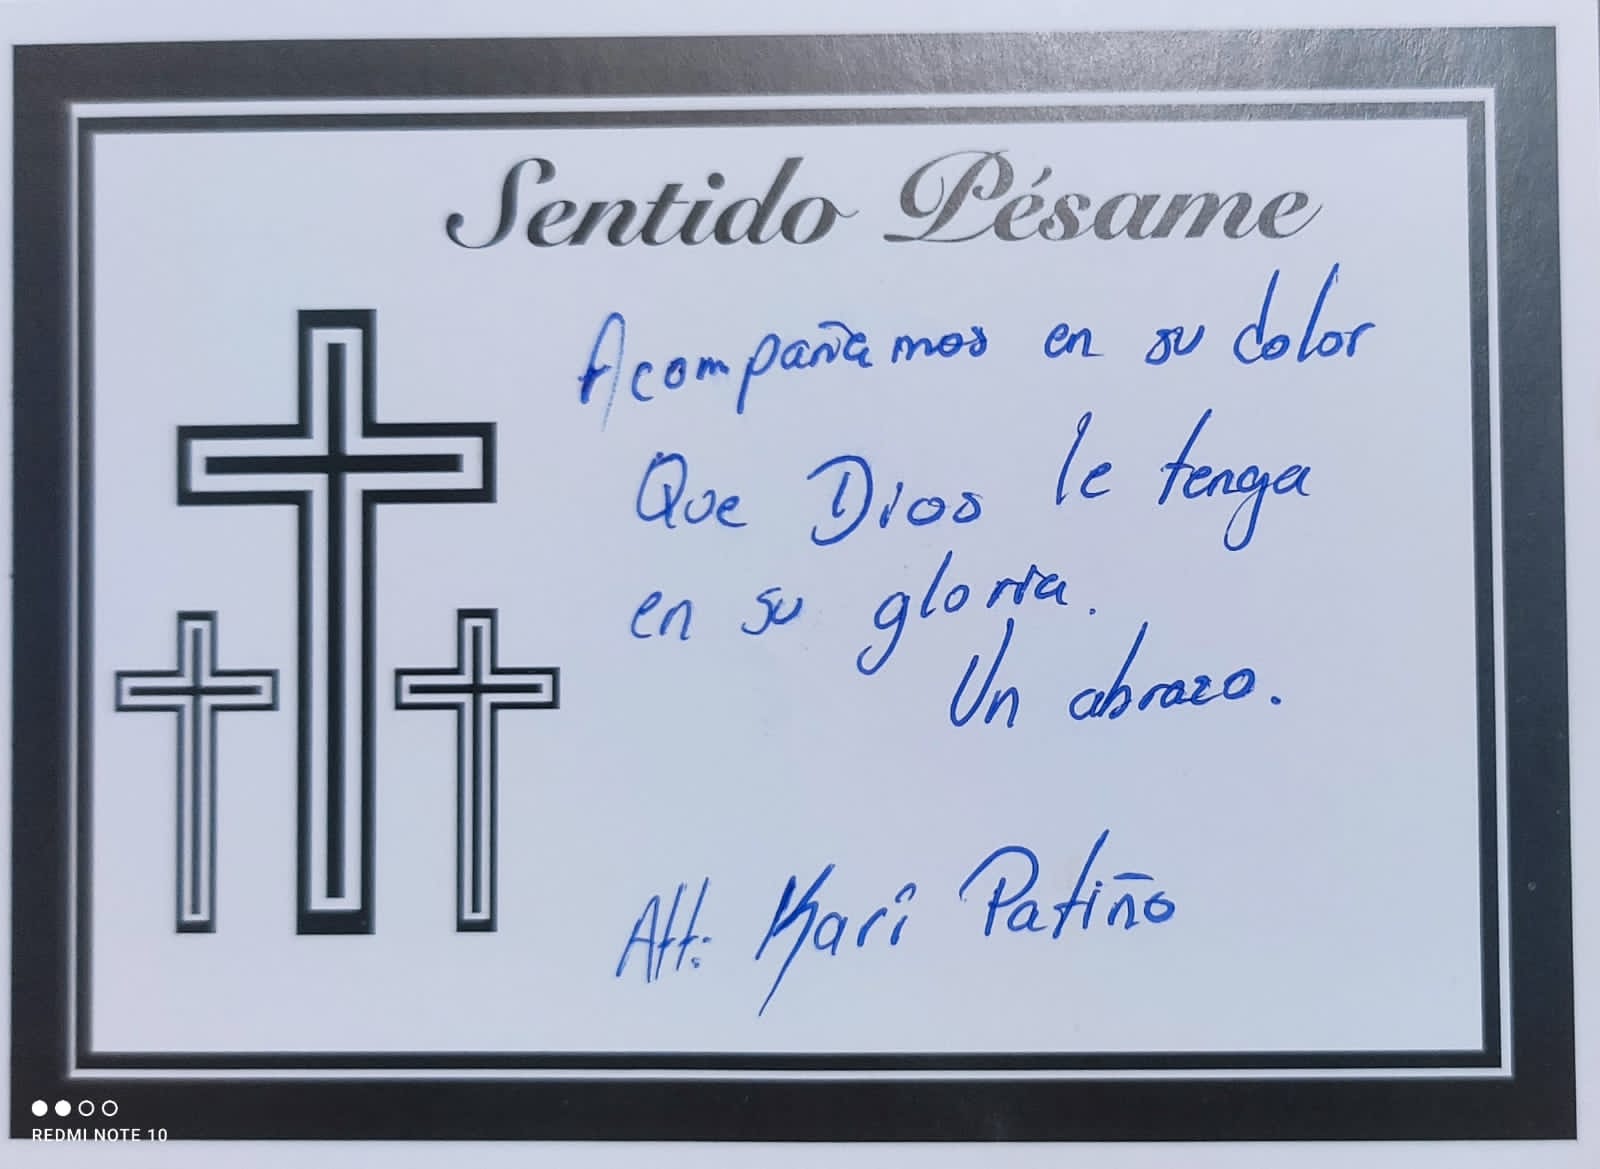 Sentido Pésame
Acompañamos en su dolor
Que Dios le tenga
en su gloria.
Un abrazo.
Att: Kari Patiño
REDMI NOTE 10